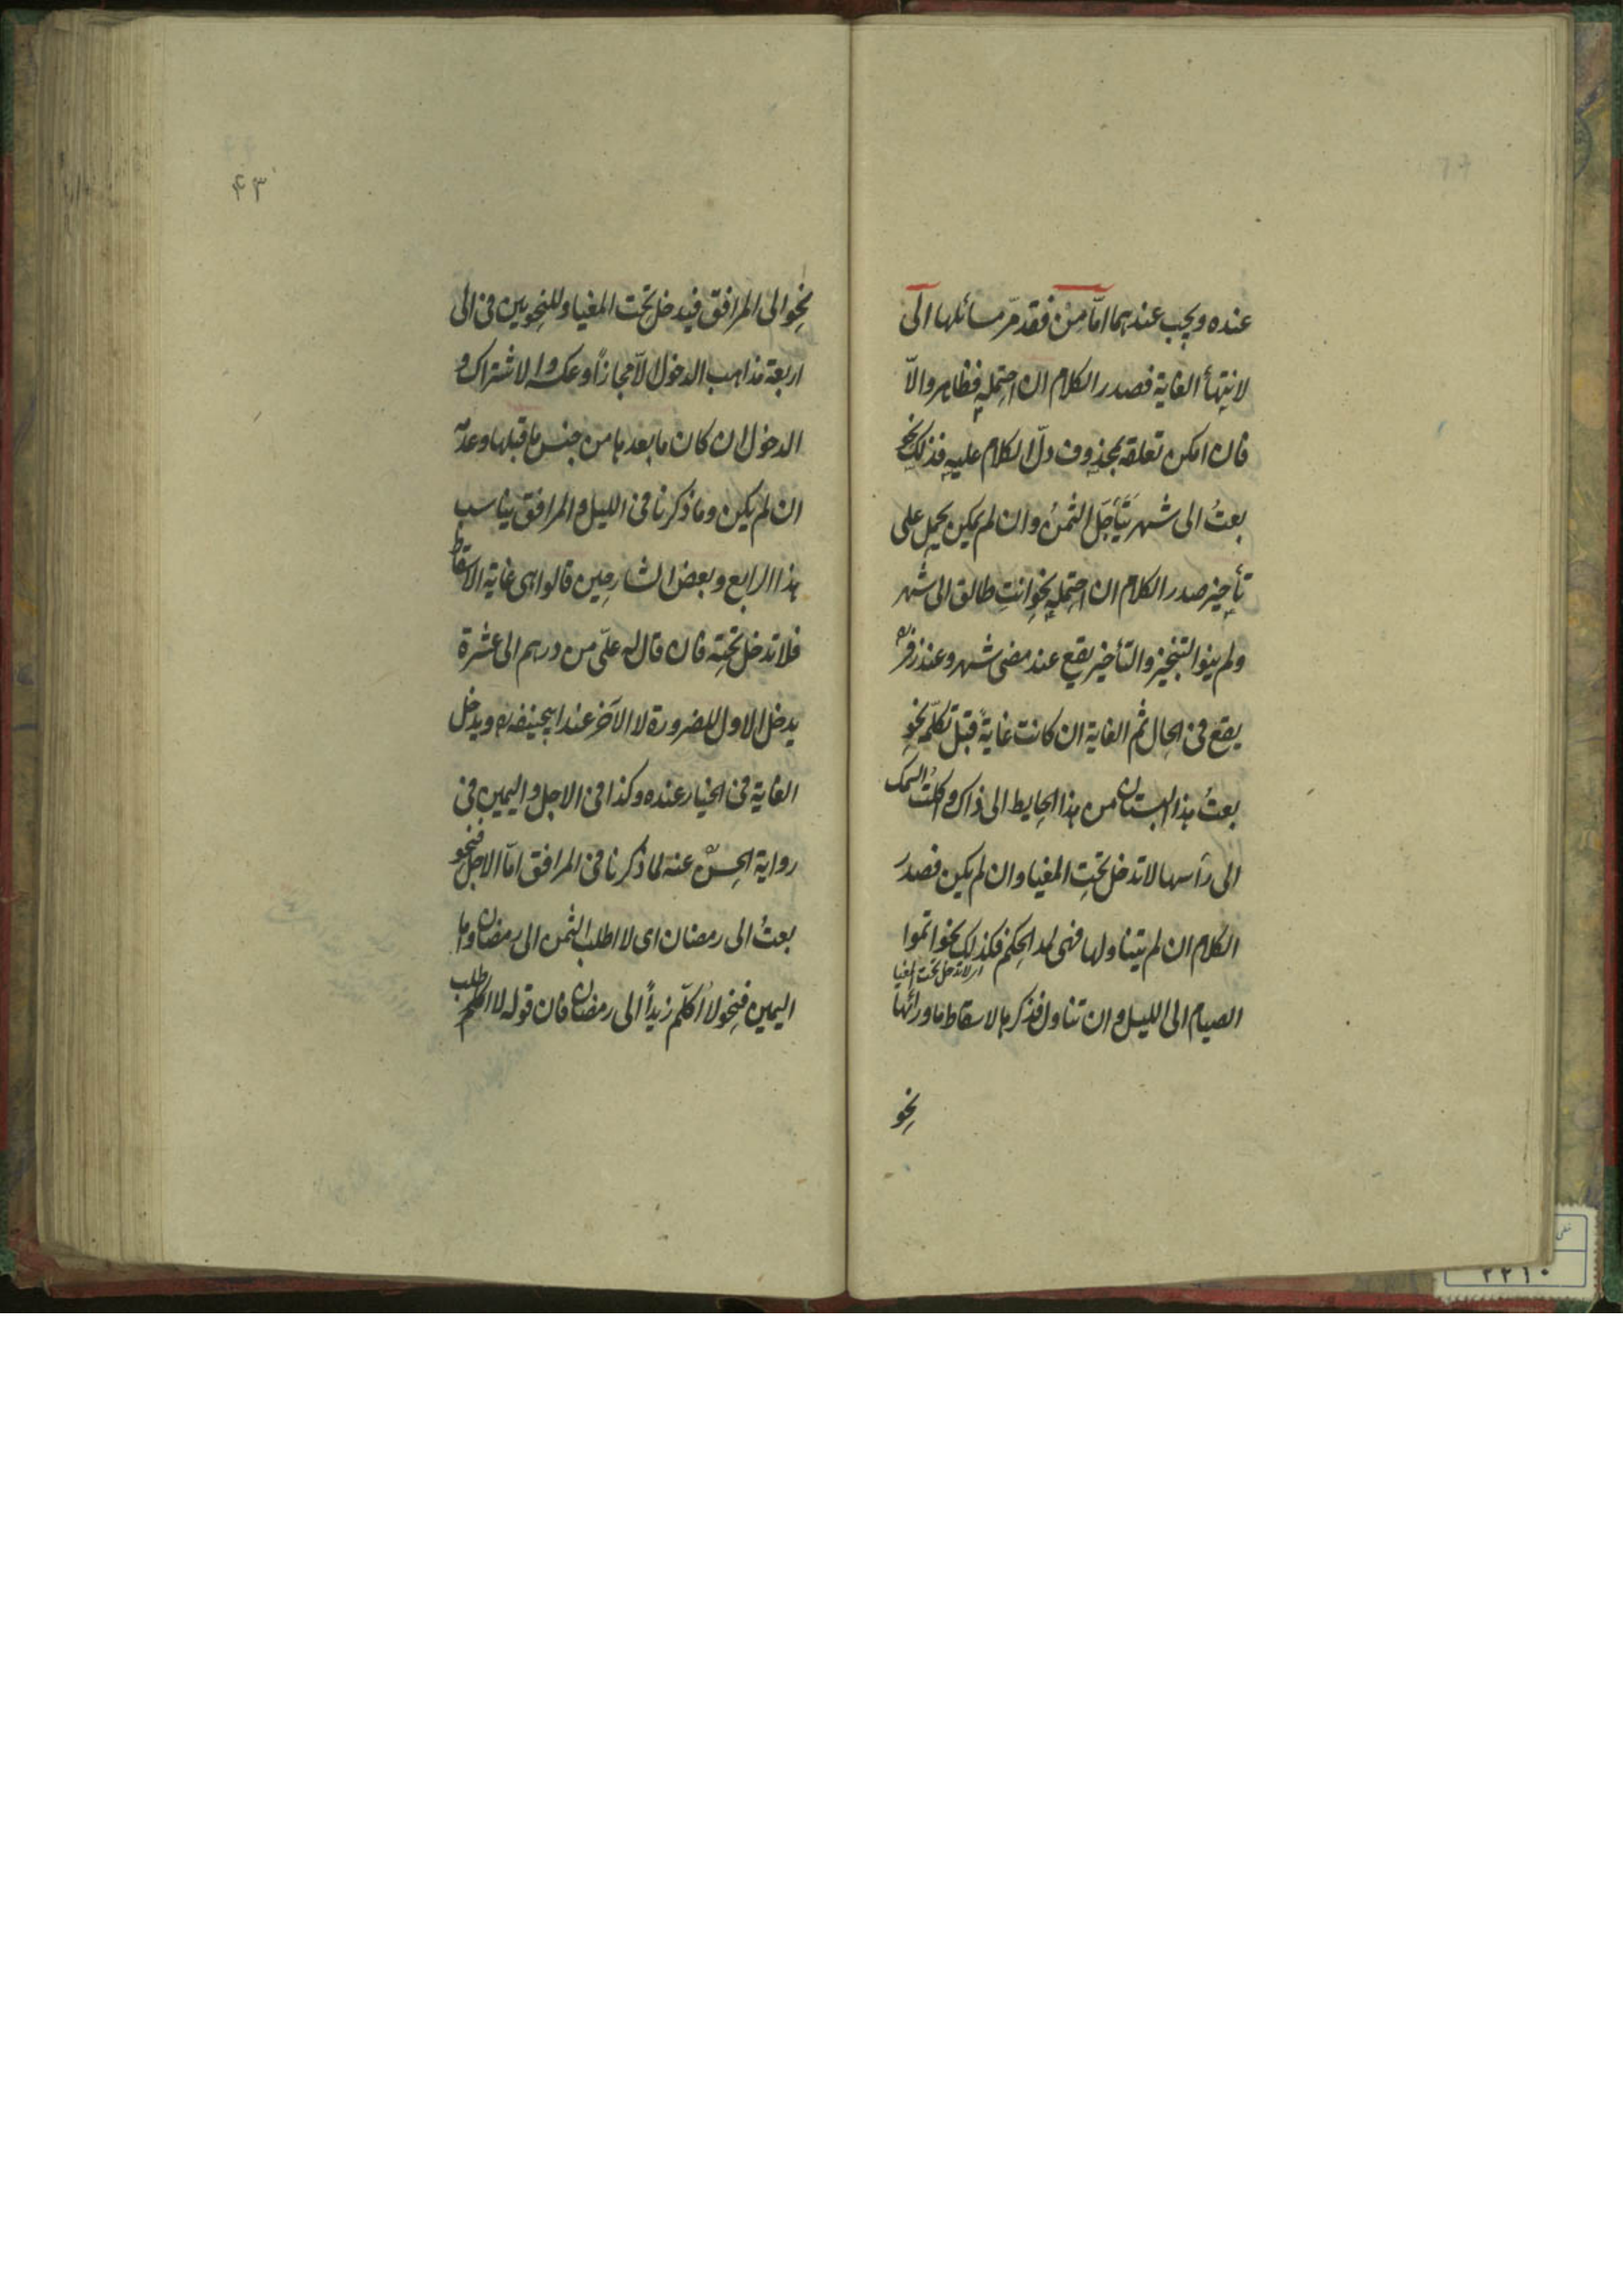 عنده ويجب عندهما امّا من فقد مرّ مسائلها الى
لانتهاء الغاية فصدر الكلام ان احتمله فظاهر والّا
فان امكن تعلقه بمحذوف دلّ الكلام عليه فذلك نحو
بعتُ الى شهر يتأجّل الثمنُ وان لم يمكن يحمل على
تأخير صدر الكلام ان احتمله نحو انتِ طالق الى شهر
ولم ينو التنجيز والتأخير يقع عند مضى شهر وعند زفر رح
يقع فى الحال ثم الغاية ان كانت غايةً قبل تكلّمه نحو
بعتُ هذا البستان من هذا الحايط الى ذاك واكلتُ السمك
الى رأسها لا تدخل تحت المغيا وان لم يكن فصدر
الكلام ان لم يتناولها فهى لمد الحكم فكذلك نحو اتموا
اى لا تدخل تحت المغيا
الصيام الى الليل وان تناول فذكرها لاسقاط ما ورائها
نحو
٤٣
نحو الى المرافق فيدخل تحت المغيا وللنحويين فى الى
اربعة مذاهب الدخول الّا مجازاً وعكسه والاشتراك و
الدخول ان كان ما بعدها من جنس ما قبلها وعدمه
ان لم يكن وما ذكرنا فى الليل والمرافق يناسب
هذا الرابع وبعض الشارحين قالوا هى غاية الاسقاط
فلا تدخل تحته فان قال له علىّ من درهم الى عشرة
يدخل الاول للضرورة لا الآخر عند ابيحنيفه رح ويدخل
الغاية فى الخيار عنده وكذا فى الاجل واليمين فى
رواية الحسن عنه لما ذكرنا فى المرافق امّا الاجل فنحو
بعتُ الى رمضان اى لا اطلب الثمن الى رمضان واما
اليمين فنحو لا اُكلّم زيداً الى رمضان فان قوله لا اطلب
لا اكلم
٢٢١٠